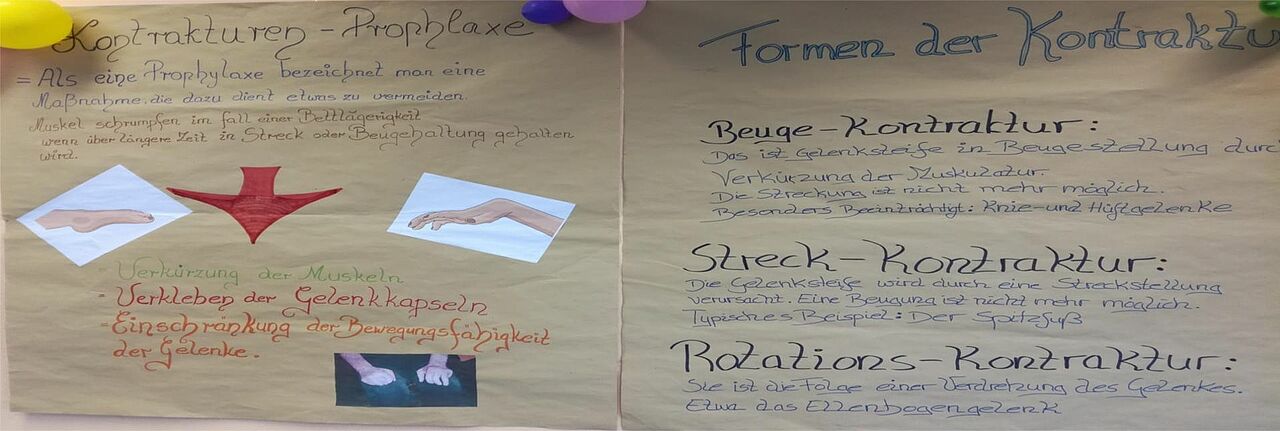 Kontrakturen - Prophlaxe
= Als eine Prophylaxe bezeichnet man eine
Maßnahme, die dazu dient etwas zu vermeiden.
Muskel schrumpfen im fall einer Bettlägerigkeit
wenn über längere Zeit in Streck oder Beugehaltung gehalten
wird.
- Verkürzung der Muskeln
- Verkleben der Gelenkkapseln
- Einschränkung der Bewegungsfähigkeit
der Gelenke.
Formen der Kontraktu
Beuge-Kontraktur:
Das ist Gelenksteife in Beugestellung durc
Verkürzung der Muskulatur.
Die Streckung ist nicht mehr möglich.
Besonders Beeinträchtigt: Knie- und Hüftgelenke
Streck-Kontraktur:
Die Gelenksteife wird durch eine Streckstellung
verursacht. Eine Beugung ist nicht mehr möglich.
Typisches Beispiel: Der Spitzfuß
Rotations-Kontraktur:
Sie ist die Folge einer Verdrehung des Gelenkes.
Etwa das Ellenbogengelenk